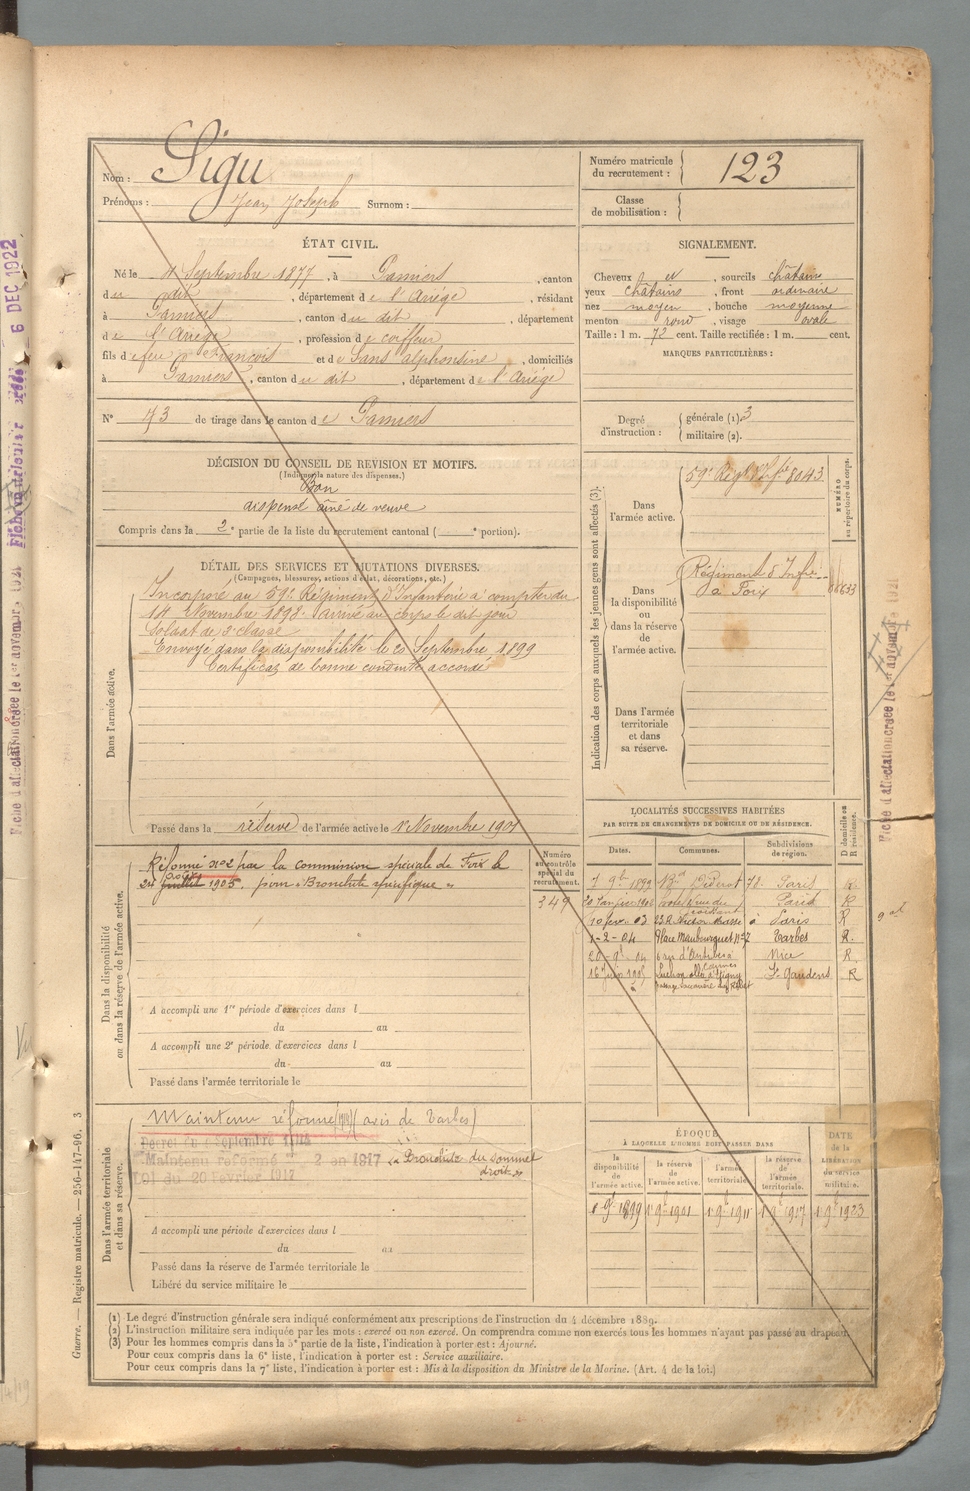 Nom : Sigu
Prénoms : Jean Joseph Surnom :
Numéro matricule du recrutement : 123
Classe de mobilisation :
ÉTAT CIVIL.
Né le Septembre 1877, à Pamiers, canton
du dit, département de l'Ariège, résidant
à Pamiers, canton du dit, département
de l'Ariège, profession de coiffeur
fils de feu François et de Sans alphonsine, domiciliés
à Pamiers, canton du dit, département de l'Ariège
N° 43 de tirage dans le canton de Pamiers
SIGNALEMENT.
Cheveux et, sourcils châtains
yeux châtains, front ordinaire
nez moyen, bouche moyenne
menton rond, visage ovale
Taille : 1 m. 72 cent. Taille rectifiée : 1 m. cent.
MARQUES PARTICULIÈRES :
Degré d'instruction : générale (1) 3
militaire (2).
DÉCISION DU CONSEIL DE REVISION ET MOTIFS.
(Indiquer la nature des dispenses.)
Bon
dispensé ainé de veuve
Compris dans la 2e partie de la liste du recrutement cantonal ( e portion).
DÉTAIL DES SERVICES ET MUTATIONS DIVERSES.
(Campagnes, blessures, actions d'éclat, décorations, etc.)
Dans l'armée active.
Incorporé au 59e Régiment d'Infanterie à compter du
14 Novembre 1898. arrivé au corps le dit jour
soldat de 2e classe
Envoyé dans la disponibilité le 20 Septembre 1899
Certificat de bonne conduite accordé
Passé dans la réserve de l'armée active le 1er Novembre 1901
Indication des corps auxquels les jeunes gens sont affectés (3).
Dans l'armée active.
59e Rég d'Inf ie 8043
NUMÉRO au répertoire du corps.
Dans la disponibilité ou dans la réserve de l'armée active.
Régiment d'Infie
à Foix
Dans l'armée territoriale et dans sa réserve.
LOCALITÉS SUCCESSIVES HABITÉES
PAR SUITE DE CHANGEMENTS DE DOMICILE OU DE RÉSIDENCE.
D domicile ou R résidence.
Dates. Communes. Subdivisions de région.
7 9bre 1899 Bd Diderot 72 Paris R
Paris R
10 fév. 03 23 R. Victor Massé à Paris R
1-2-04 Place Maubourguet n° 7 Tarbes R.
20-9bre 04 Nice R
1905 Luchon St Gaudens R
Dans la disponibilité ou dans la réserve de l'armée active.
Réformé n°2 par la commission spéciale de Foix le
24 juillet 1905. pour "Bronchite spécifique"
Numéro au contrôle spécial du recrutement.
349
A accompli une 1re période d'exercices dans l
du au
A accompli une 2e période d'exercices dans l
du au
Passé dans l'armée territoriale le
Dans l'armée territoriale et dans sa réserve.
Maintenu réformé (1914) (avis de Tarbes)
Décret du 9 Septembre 1914
Maintenu réformé n° 2 en 1917 "Bronchite du sommet
droit"
LOI du 20 Février 1917
A accompli une période d'exercices dans l
du au
Passé dans la réserve de l'armée territoriale le
Libéré du service militaire le
ÉPOQUE
À LAQUELLE L'HOMME DOIT PASSER DANS
la disponibilité de l'armée active.
la réserve de l'armée active.
l'armée territoriale.
la réserve de l'armée territoriale.
DATE de la LIBÉRATION du service militaire.
1 9bre 1899 1 9bre 1901 1 9bre 1911 1 9bre 1917 1 9bre 1923
(1) Le degré d'instruction générale sera indiqué conformément aux prescriptions de l'instruction du 4 décembre 1889.
(2) L'instruction militaire sera indiquée par les mots : exercé ou non exercé. On comprendra comme non exercés tous les hommes n'ayant pas passé au drapeau.
(3) Pour les hommes compris dans la 5e partie de la liste, l'indication à porter est : Ajourné.
Pour ceux compris dans la 6e liste, l'indication à porter est : Service auxiliaire.
Pour ceux compris dans la 7e liste, l'indication à porter est : Mis à la disposition du Ministre de la Marine. (Art. 4 de la loi.)
Guerre. — Registre matricule. — 256-147-96. 3
Fiche d'affectation créée le 1er novembre 1921
6 DEC 1922